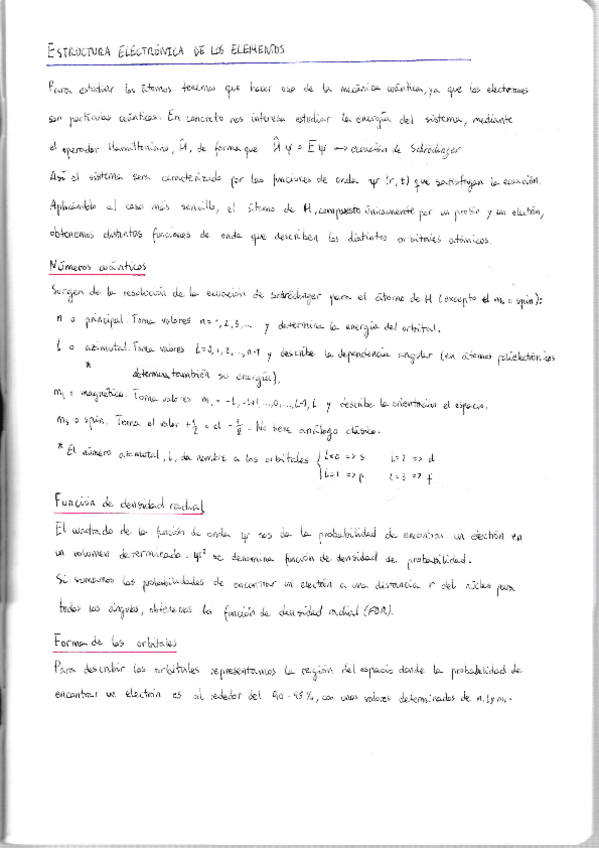 ESTRUCTURA ELECTRÓNICA DE LOS ELEMENTOS
Para estudiar los átomos tenemos que hacer uso de la mecánica cuántica, ya que los electrones
son partículas cuánticas. En concreto nos interesa estudiar la energía del sistema, mediante
el operador Hamiltoniano, Ĥ, de forma que Ĥψ = Eψ → ecuación de Schrödinger
Así el sistema sera caracterizado por las funciones de onda ψ (r, t) que satisfagan la ecuación.
Aplicándolo al caso más sencillo, el átomo de H, compuesto únicamente por un protón y un electrón,
obtenemos distintas funciones de onda que describen los distintos orbitales atómicos.
Números cuánticos
Surgen de la resolución de la ecuación de Schrödinger para el átomo de H (excepto el ms o spin):
n o principal. Toma valores n = 1, 2, 3, ... y determina la energía del orbital.
l o azimutal. Toma valores l = 0, 1, 2, ..., n-1 y describe la dependencia angular (en átomos polielectrónicos
* determina también su energía).
ml o magnético. Toma valores ml = -l, -l+1, ..., 0, ..., l-1, l y describe la orientación el espacio.
ms o spin. Toma el valor +1/2 o el -1/2. No tiene análogo clásico.
* El número azimutal, l, da nombre a los orbitales { l=0 => s l=2 => d
l=1 => p l=3 => f
Función de densidad radial
El cuadrado de la función de onda ψ nos da la probabilidad de encontrar un electrón en
un volumen determinado. ψ² se denomina función de densidad de probabilidad.
Si sumamos las probabilidades de encontrar un electrón a una distancia r del núcleo para
todos los ángulos, obtenemos la función de densidad radial (FDR).
Forma de los orbitales
Para describir los orbitales representamos la región del espacio donde la probabilidad de
encontrar un electrón es al rededor del 90-95%, con unos valores determinados de n, l y ml.